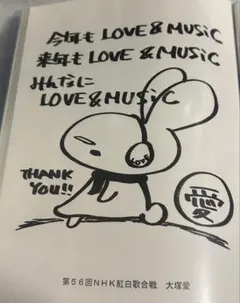 今年も LOVE & MUSiC
来年も LOVE & MUSiC
みんなに
LOVE & MUSiC
LOVE
THANK
YOU!!
愛
第56回NHK紅白歌合戦 大塚愛